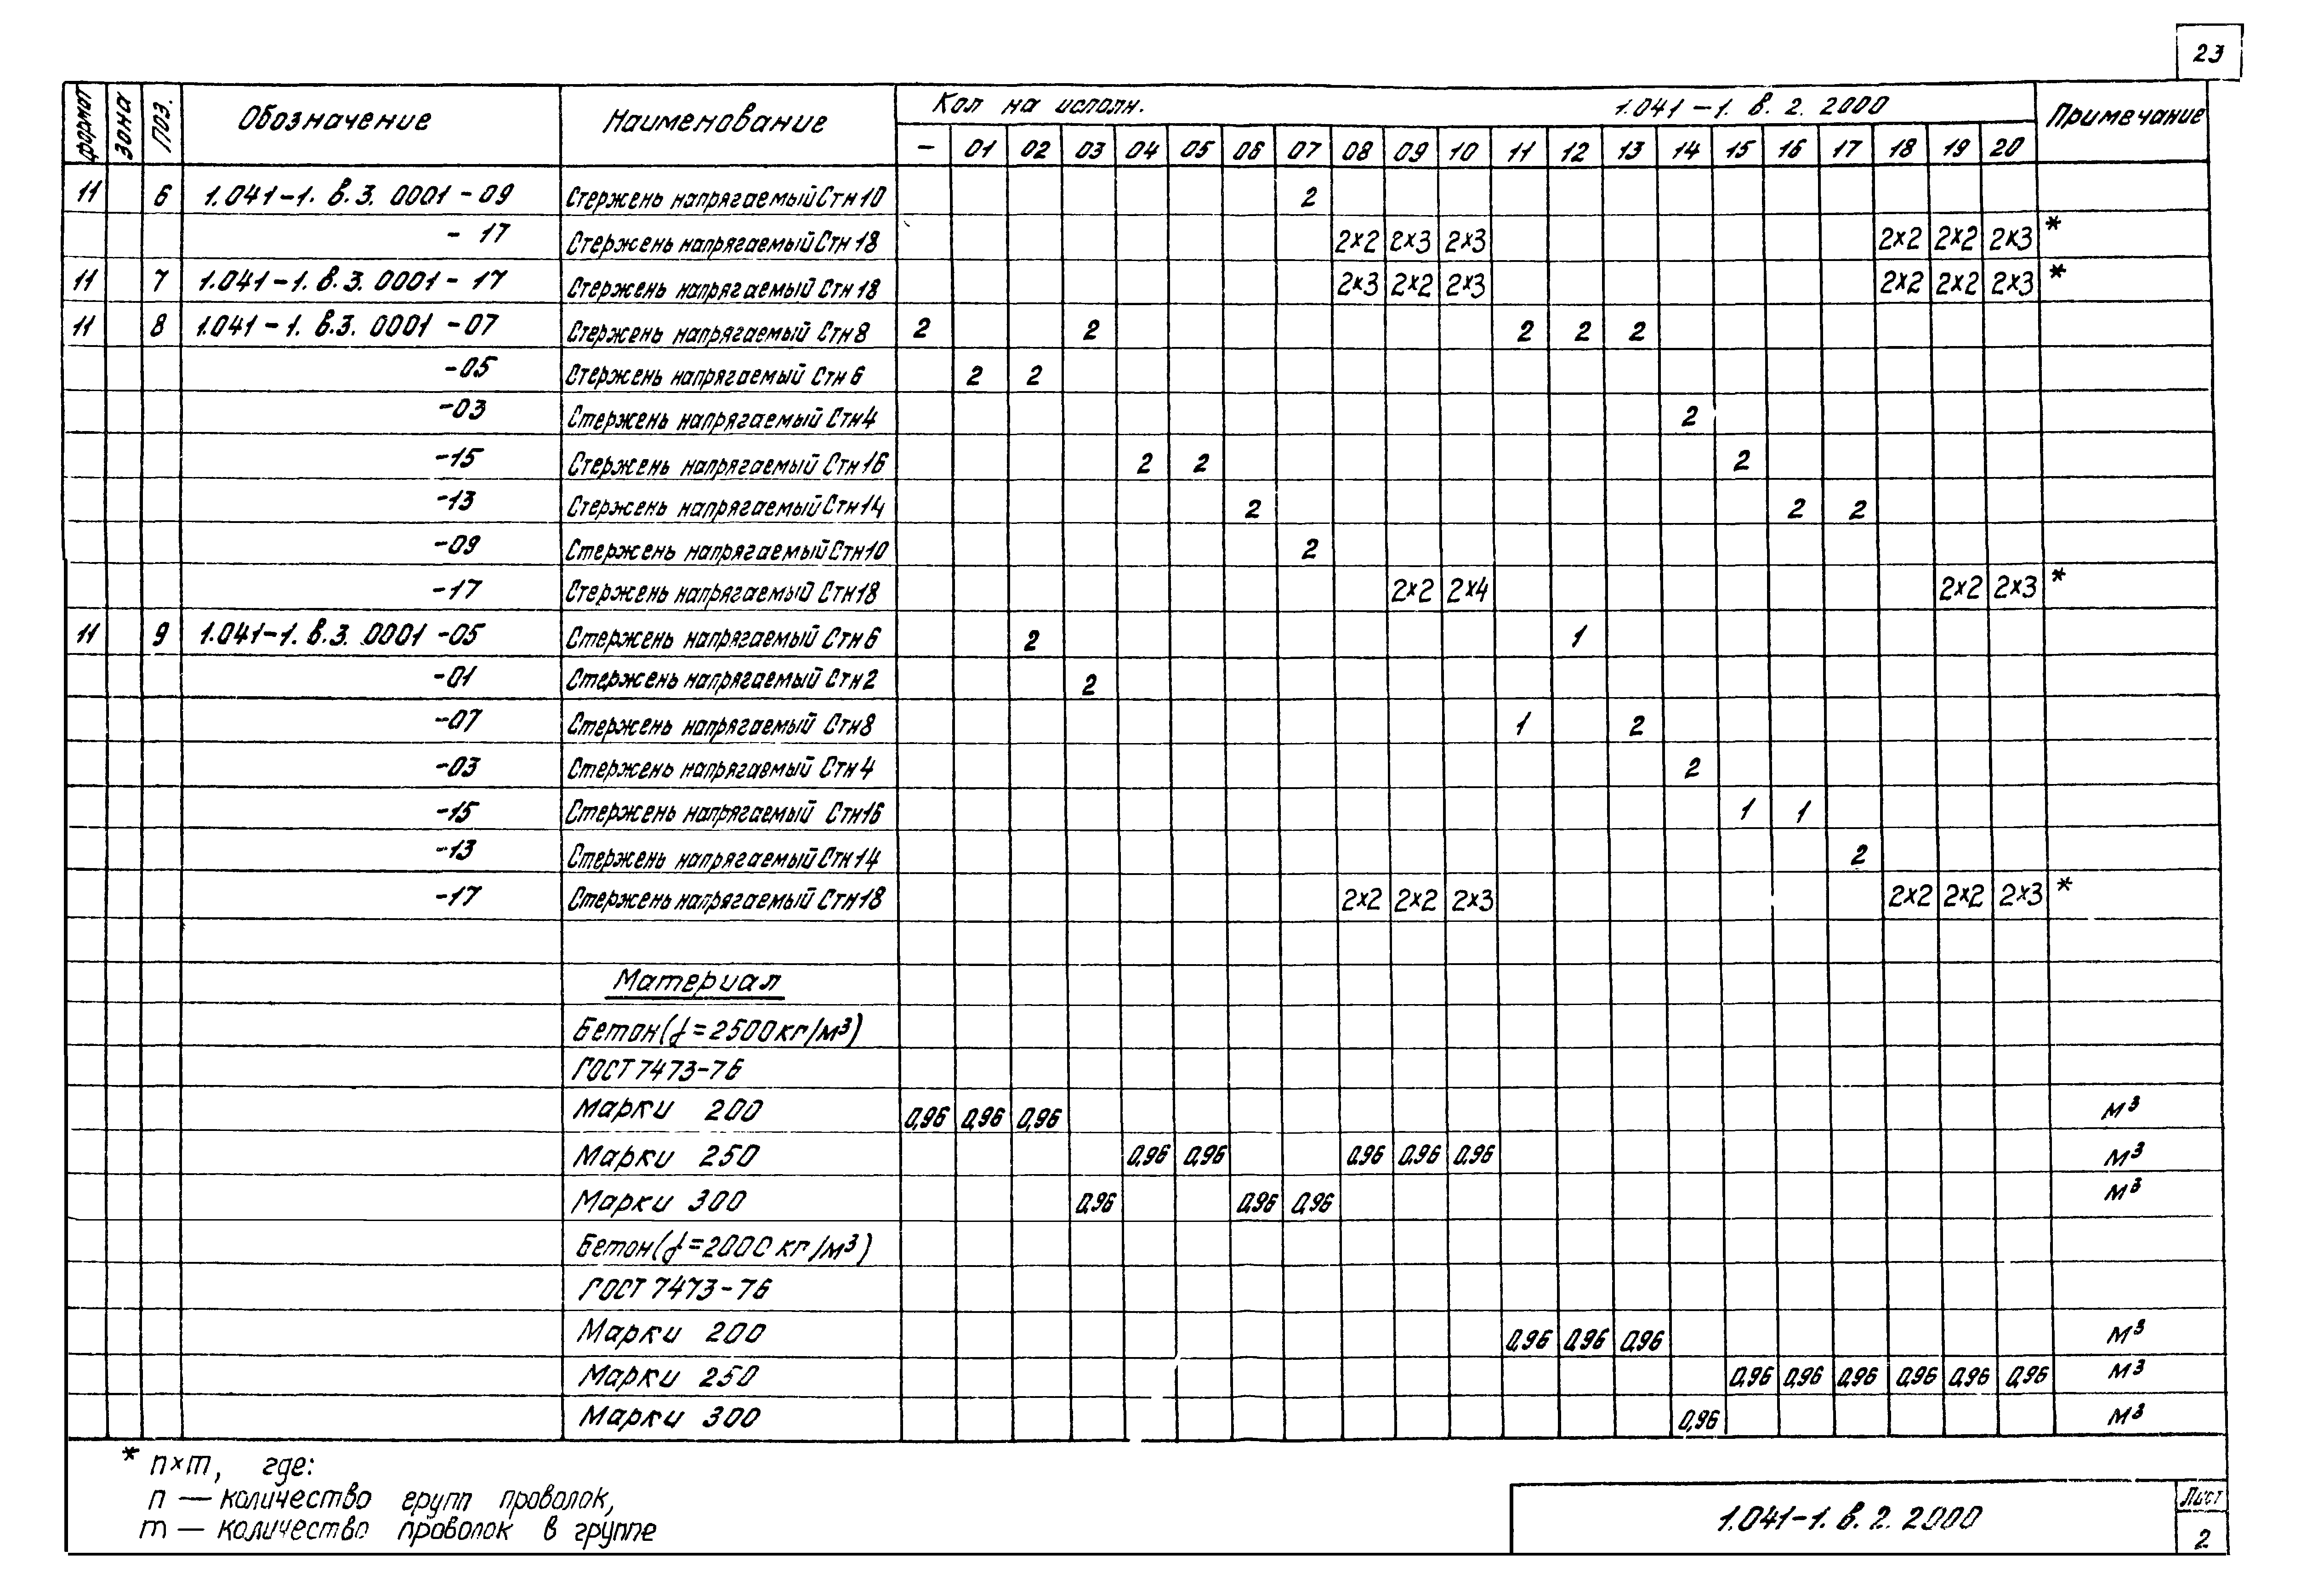 23
формат зона поз. Обозначение Наименование Кол на исполн. 1.041-1. в. 2. 2000 Примечание
— 01 02 03 04 05 06 07 08 09 10 11 12 13 14 15 16 17 18 19 20
11 6 1.041-1. в.3. 0001-09 Стержень напрягаемый Стн 10 2
-17 Стержень напрягаемый Стн 18 2×2 2×3 2×3 2×2 2×2 2×3 *
11 7 1.041-1. в.3. 0001-17 Стержень напрягаемый Стн 18 2×3 2×2 2×3 2×2 2×2 2×3 *
11 8 1.041-1. в.3. 0001-07 Стержень напрягаемый Стн 8 2 2 2 2 2
-05 Стержень напрягаемый Стн 6 2 2
-03 Стержень напрягаемый Стн 4 2
-15 Стержень напрягаемый Стн 16 2 2 2
-13 Стержень напрягаемый Стн 14 2 2 2
-09 Стержень напрягаемый Стн 10 2
-17 Стержень напрягаемый Стн 18 2×2 2×4 2×2 2×3 *
11 9 1.041-1. в.3. 0001-05 Стержень напрягаемый Стн 6 2 1
-01 Стержень напрягаемый Стн 2 2
-07 Стержень напрягаемый Стн 8 1 2
-03 Стержень напрягаемый Стн 4 2
-15 Стержень напрягаемый Стн 16 1 1
-13 Стержень напрягаемый Стн 14 2
-17 Стержень напрягаемый Стн 18 2×2 2×2 2×3 2×2 2×2 2×3 *
Материал
Бетон (γ=2500кг/м³)
ГОСТ 7473-76
Марки 200 0,96 0,96 0,96 м³
Марки 250 0,96 0,96 0,96 0,96 0,96 м³
Марки 300 0,96 0,96 0,96 м³
Бетон (γ=2000 кг/м³)
ГОСТ 7473-76
Марки 200 0,96 0,96 0,96 м³
Марки 250 0,96 0,96 0,96 0,96 0,96 0,96 м³
Марки 300 0,96 м³
* n×m, где:
n — количество групп проволок,
m — количество проволок в группе
1.041-1. в. 2. 2000
Лист
2